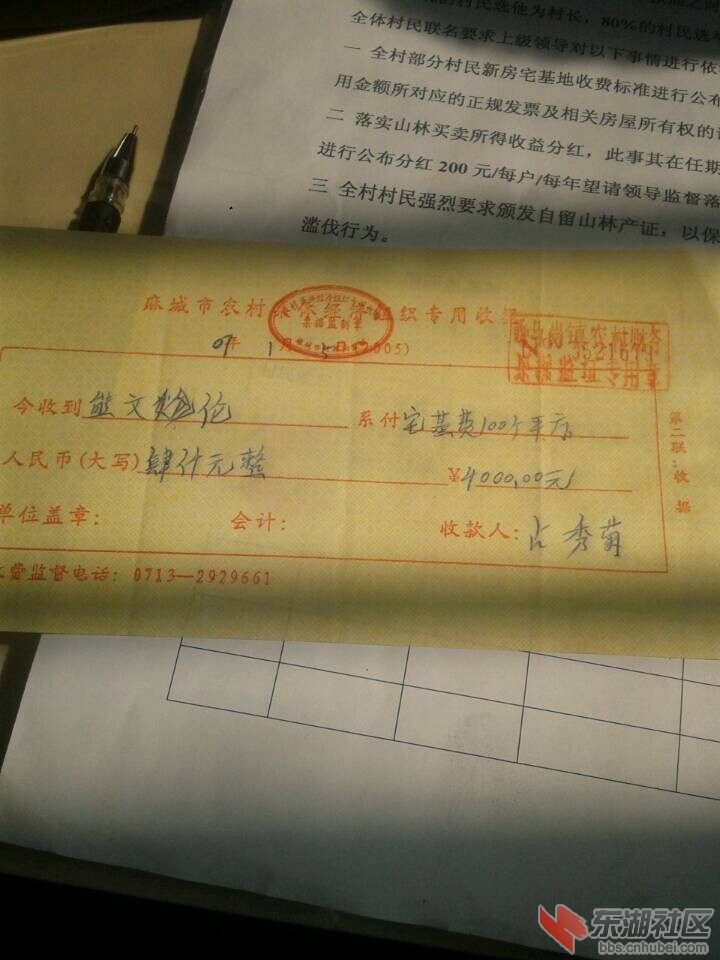 的村民选他为村长，80%的村民选
全体村民联名要求上级领导对以下事情进行依
一 全村部分村民新房宅基地收费标准进行公布
用金额所对应的正规发票及相关房屋所有权的
二 落实山林买卖所得收益分红，此事其在任期
进行公布分红 200 元/每户/每年望请领导监督落
三 全村村民强烈要求颁发自留山林产证，以保
滥伐行为。
麻城市农村集体经济组织专用收据
票据监制章
镇农村财务
票据监证专用章
09年 1月 5日 (2005)
今收到 熊文 伦 系付 宅基费100个平方
人民币(大写) 肆仟元整 ¥4000.00元
单位盖章： 会计： 收款人：占秀菊
费监督电话：0713—2929661
第二联：收据
东湖社区
bbs.cnhubei.com